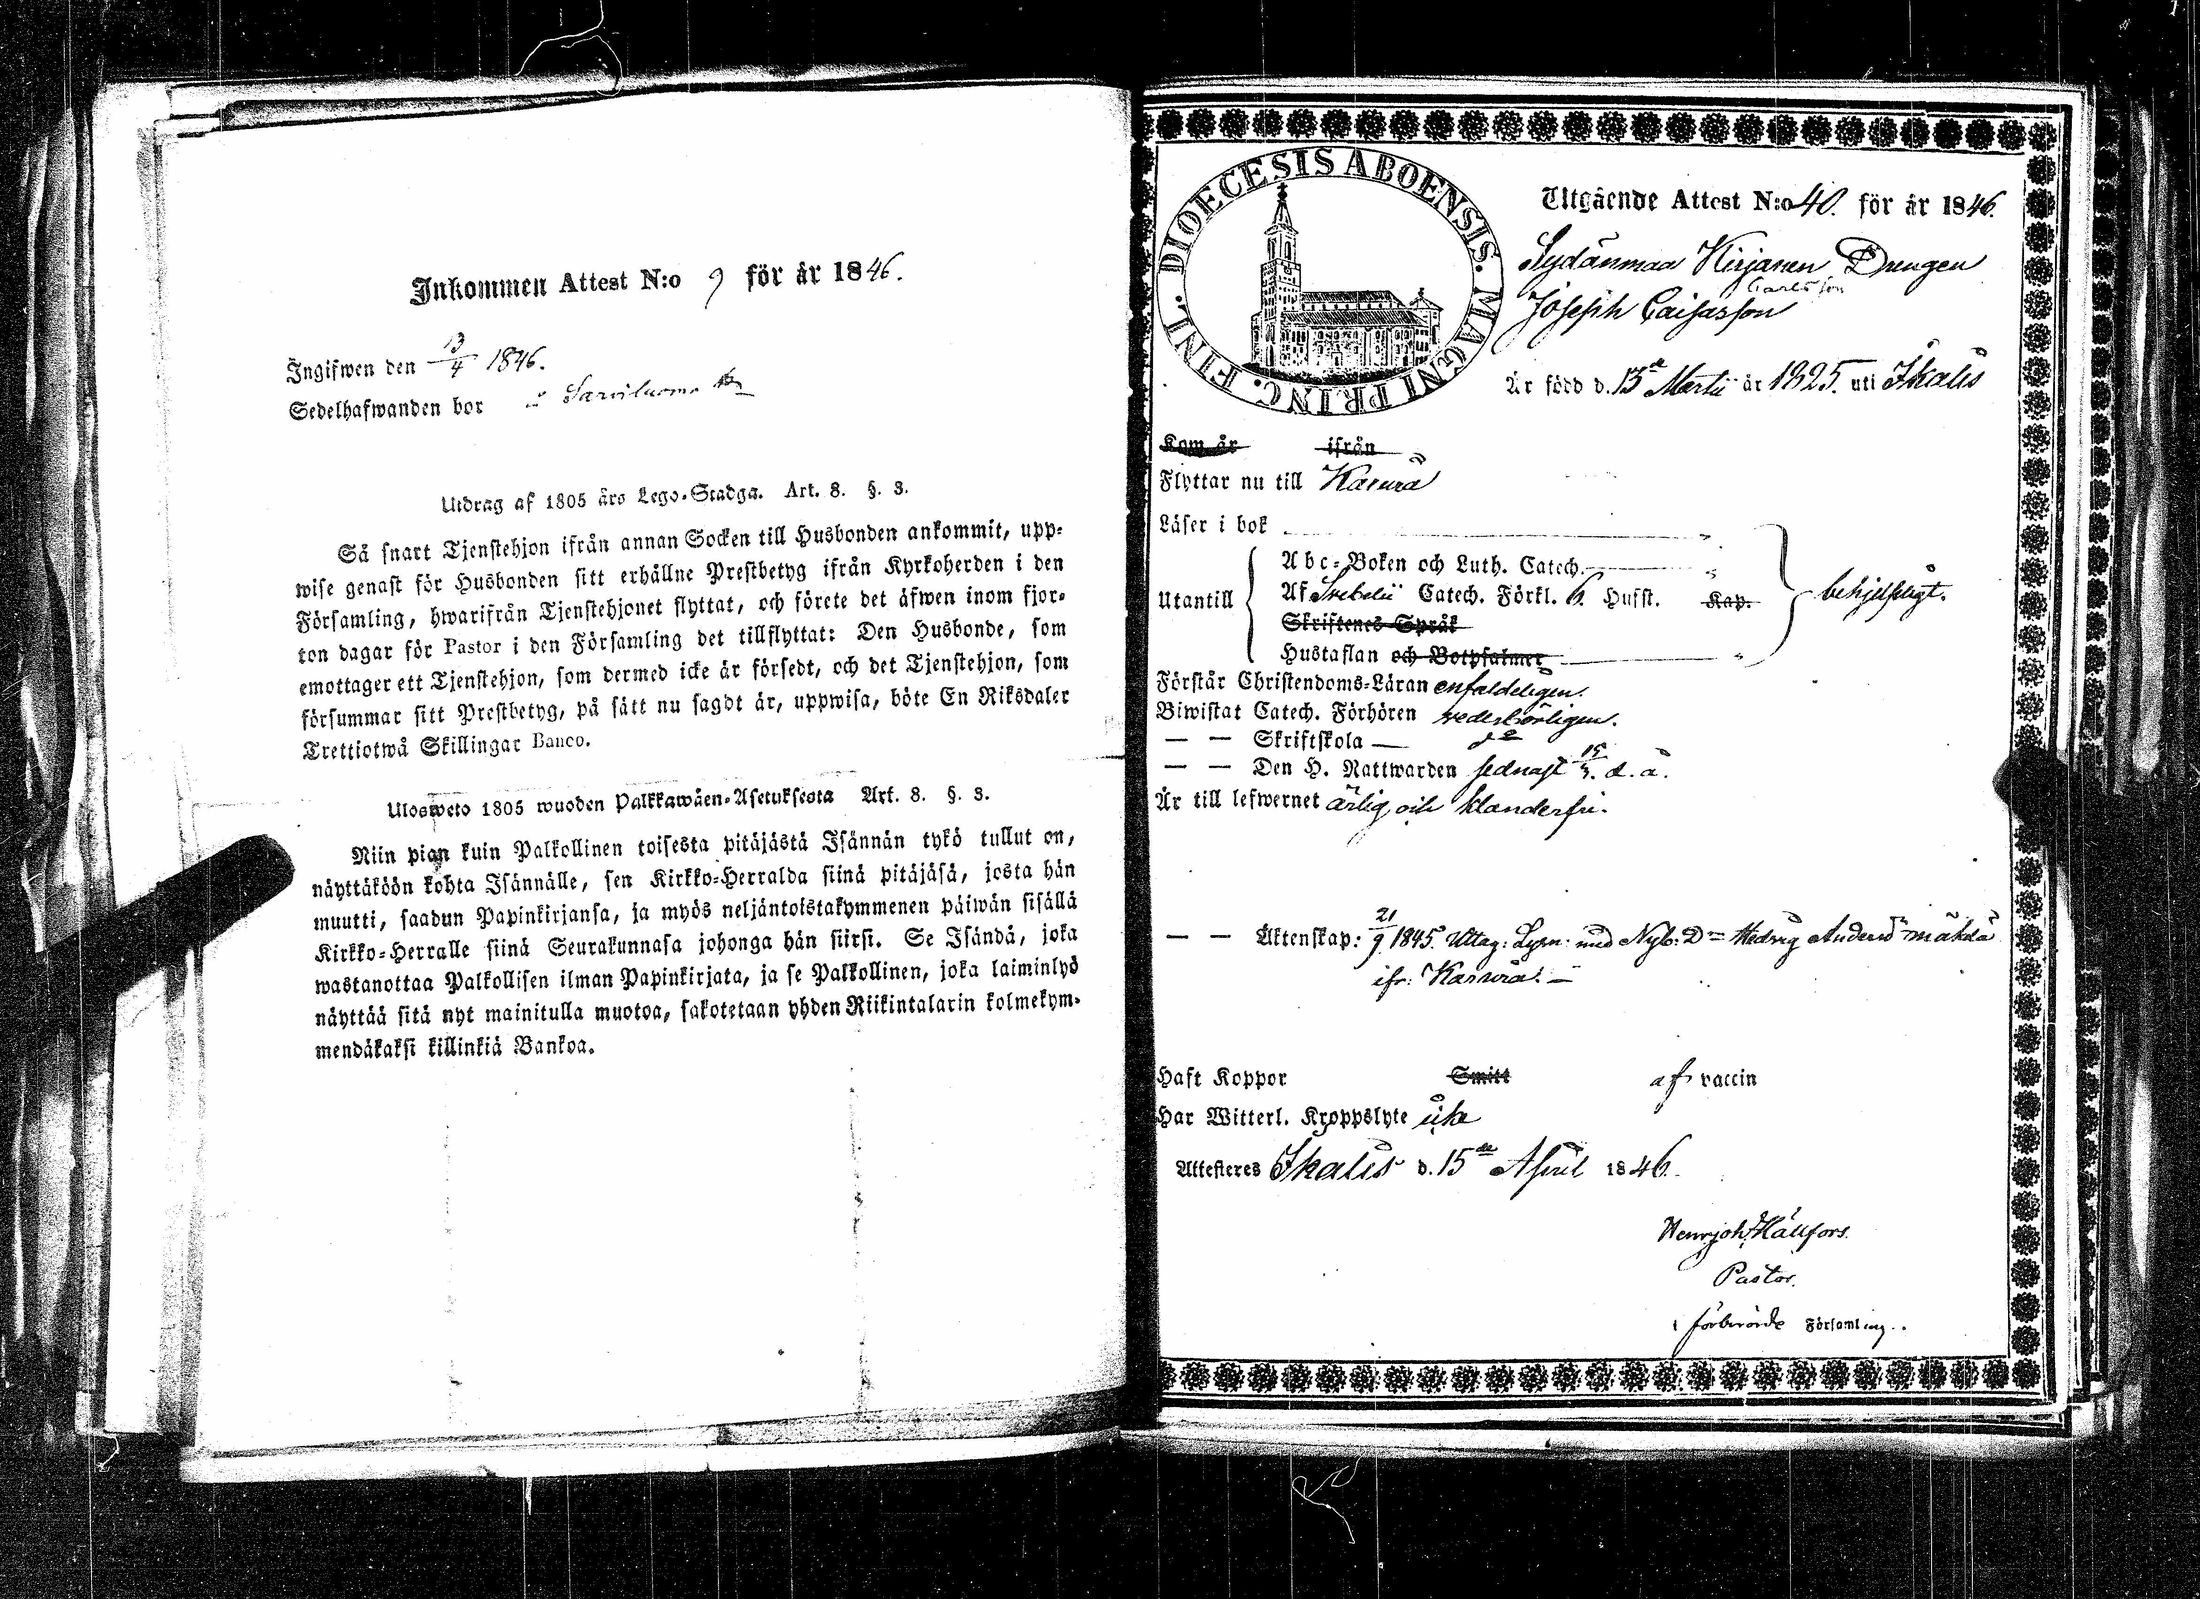 Inkommen Attest N:o 9 för år 1846.
Ingifwen den 13/4 1846.
Sedelhafwanden bor
Utdrag af 1805 års Lego-Stadga. Art. 8. §. 3.
Så snart Tjenstehjon ifrån annan Socken till Husbonden ankommit, upp-
wise genast för Husbonden sitt erhållne Prestbetyg ifrån Kyrkoherden i den
Församling, hwarifrån Tjenstehjonet flyttat, och förete det äfwen inom fjor-
ton dagar för Pastor i den Församling det tillflyttat: Den Husbonde, som
emottager ett Tjenstehjon, som dermed icke är försedt, och det Tjenstehjon, som
försummar sitt Prestbetyg, på sätt nu sagdt är, uppwisa, böte En Riksdaler
Trettiotwå Skillingar Banco.
Ulosweto 1805 wuoden Palkkawäen-Asetuksesta Art. 8. §. 3.
Niin pian kuin Palkollinen toisesta pitäjästä Isännän tykö tullut on,
näyttäköön kohta Isännälle, sen Kirkko-Herralda siinä pitäjäsä, josta hän
muutti, saadun Papinkirjansa, ja myös neljäntoistakymmenen päiwän sisällä
Kirkko-Herralle siinä Seurakunnasa johonga hän siirsi. Se Isändä, joka
wastanottaa Palkollisen ilman Papinkirjata, ja se Palkollinen, joka laiminlyö
näyttää sitä nyt mainitulla muotoa, sakotetaan yhden Riikintalarin kolmekym-
mendäkaksi killinkiä Bankoa.
DIOECESIS ABOENSIS. MAGNI PRINC. FINL.
Utgående Attest N:o 40. för år 1846.
Sydänmaa Kirjanen Drengen
Carlsson
Joseph Caisasson
Är född d. 13de Martii år 1825. uti Ikalis
Kom år ifrån
Flyttar nu till
Läser i bok
Abc-Boken och Luth. Catech.
Utantill Af Svebelii Catech. Förkl. 6. Husst. Kap. behjelpligt.
Skriftenes Språk
Hustaflan och Botpsalmer
Förstår Christendoms-Läran enfaldeligen.
Biwistat Catech. Förhören vederbörligen.
— — Skriftskola — do
— — Den H. Nattwarden sednast 15/3. d. å.
Är till lefwernet ärlig och klanderfri.
— — Äktenskap: 21/9 1845. Uttag: Lysn: med Dn Hedvig
ifr:
Haft Koppor Smitt af vaccin
Har Witterl. Kroppslyte icke
Attesteres Ikalis d. 15de April 1846.
Henr Joh Hällfors.
Pastor.
i förberörde Församling.